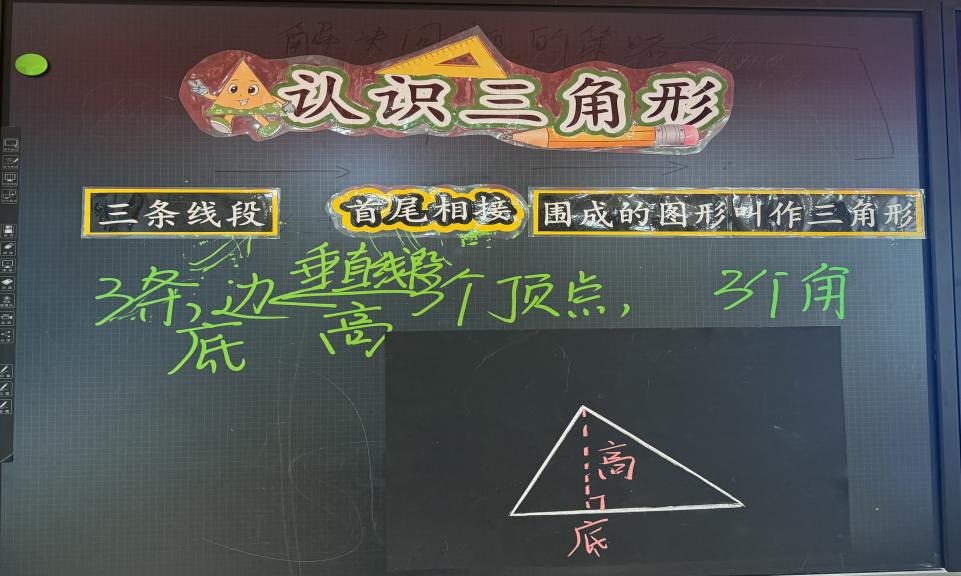 认识三角形
三条线段 首尾相接 围成的图形叫作三角形
垂直线段
3条边 3个顶点, 3个角
底 高
高
底